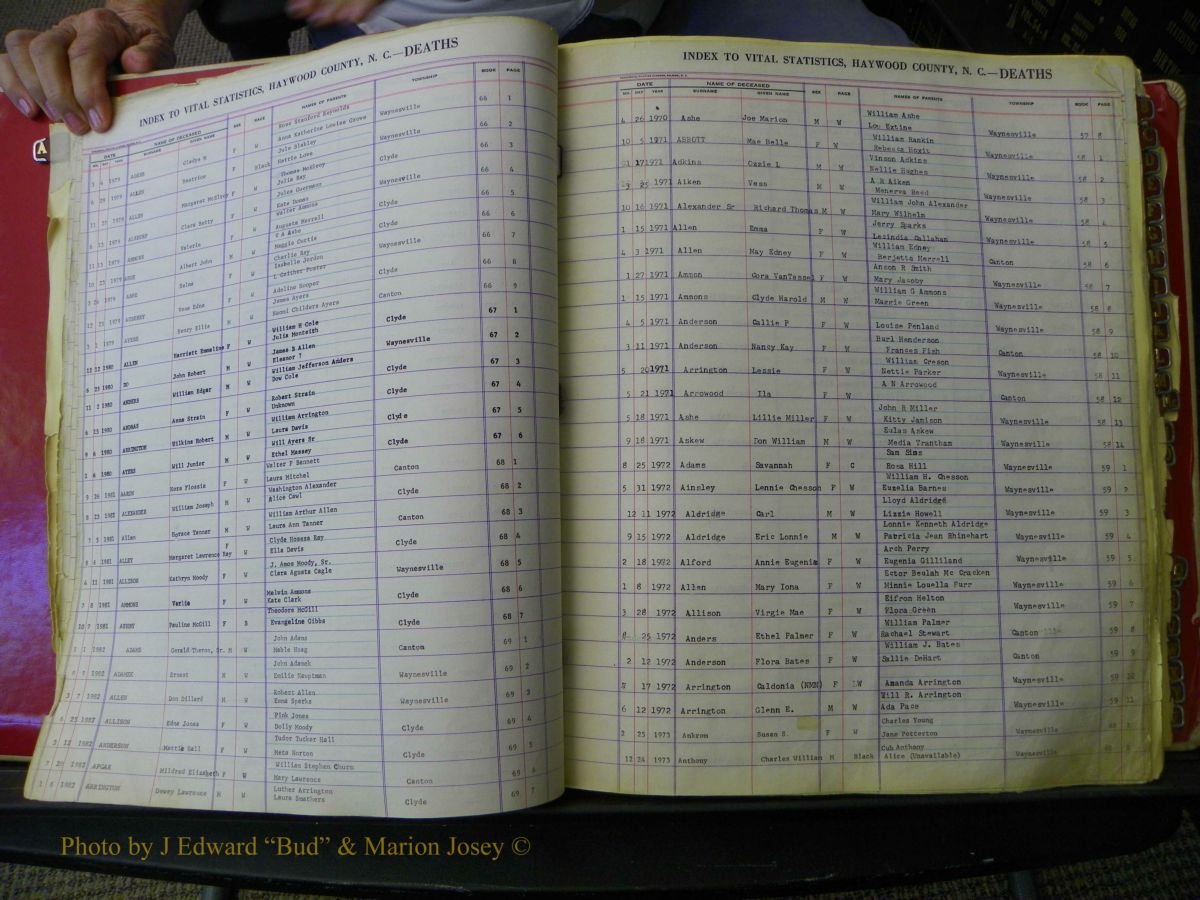 INDEX TO VITAL STATISTICS, HAYWOOD COUNTY, N. C.—DEATHS
DATE NAME OF DECEASED SEX RACE NAMES OF PARENTS TOWNSHIP BOOK PAGE
SURNAME GIVEN NAME
Gladys F W Rose Stanford Reynolds Waynesville 66 1
Anna Katherine Louise Grove
ALLEN Beatrice F Black Jule Blakley Waynesville 66 2
Harrie Love
1979 ALLEN Margaret McElroy F W Thomas McElroy Clyde 66 3
Julia Ray
1979 Clara Betty F W Waynesville 66 4
Kate
1979 AMMONS Valerie F Walter Ammons Clyde 66 5
Auguste Merrell
Albert John M W Clyde 66 6
Maggie Curtis
Selma F W Charlie Ray Waynesville 66 7
Isabelle Jordon
Vess Edna F W Clyde 66 8
Adeline Hooper
1979 AYERS Henry Ellis M W James Ayers Canton 66 9
Naomi Childers Ayers
12 1980 ALLEN Harriett Emmaline F W William H Cole Clyde 67 1
Julia Monteith
6 23 1980 DO John Robert M W James B Allen Waynesville 67 2
Eleanor ?
11 2 1980 ANDERS William Edgar M W William Jefferson Anders Clyde 67 3
Dow Cole
1980 Anna Strain F W Robert Strain Clyde 67 4
Unknown
9 6 1980 ARRINGTON Wilkins Robert M W William Arrington Clyde 67 5
Laura Davis
1980 AYERS Will Junior M W Will Ayers Sr Clyde 67 6
Ethel Massey
9 26 1981 AARON Flossie F W Walter P Bennett Canton 68 1
Laura Mitchel
1981 ALEXANDER William Joseph M W Washington Alexander Clyde 68 2
Alice Cawl
7 5 1981 Allen Horace Tanner M W William Arthur Allen Canton 68 3
Laura Ann Tanner
1981 ALLEY Margaret Lawrence Ray F W Clyde Hoseza Ray Clyde 68 4
Ella Davis
4 11 1981 ALLISON Kathryn Moody F W J. Amos Moody, Sr. Waynesville 68 5
Clara Agusta Cagle
7 8 1981 AMMONS Verlie F W Melvin Ammons Clyde 68 6
Kate Clark
10 7 1981 Pauline McGill F B Theodore McGill Clyde 68 7
Evangeline Gibbs
1 1 1982 ADAMS Gerald Theron, Sr. M W John Adams Canton 69 1
Mable Hoag
1982 ADAMEK Ernest M W John Adamek Waynesville 69 2
Emilie Hauptman
3 7 1982 ALLEN Don Dillard M W Robert Allen Waynesville 69 3
Emma Sparks
6 25 1982 ALLISON Edna Jones F W Pink Jones Clyde 69 4
Dolly Moody
3 12 1982 ANDERSON Mattie Hall F W Tudor Tucker Hall Clyde 69 5
Meta Norton
7 20 1982 APGAR Mildred Elizabeth F W William Stephen Churn Canton 69 6
Mary Lawrence
1 6 1982 ARRINGTON Dewey Lawrence M W Luther Arrington Clyde 69 7
Laura Smathers
INDEX TO VITAL STATISTICS, HAYWOOD COUNTY, N. C.—DEATHS
DATE NAME OF DECEASED SEX RACE NAMES OF PARENTS TOWNSHIP BOOK PAGE
MO. DAY YEAR SURNAME GIVEN NAME
4 26 1970 Ashe Joe Marion M W William Ashe Waynesville 57 8
Lou Extine
10 5 1971 ABBOTT Mae Belle F W William Rankin Waynesville 58 1
Rebecca Hoxit
1 17 1971 Adkins Ozzie L M W Vinson Adkins Waynesville 58 2
Nellie Hughes
3 25 1971 Aiken Vess M W A R Aiken Waynesville 58 3
Menerva Reed
10 16 1971 Alexander Sr Richard Thomas M W William John Alexander Waynesville 58 4
Mary Wilhelm
1 15 1971 Allen Emma F W Jerry Sparks Waynesville 58 5
Lucindia Callahan
4 3 1971 Allen May Edney F W William Edney Canton 58 6
Berjetta Merrell
1 27 1971 Ammon Cora VanTassel F W Anson R Smith Waynesville 58 7
Mary Jacoby
1 15 1971 Ammons Clyde Harold M W William G Ammons Waynesville 58 8
Maggie Green
4 5 1971 Anderson Callie P F W Waynesville 58 9
Louise Penland
3 11 1971 Anderson Nancy Kay F W Burl Henderson Canton 58 10
Frances Fish
5 20 1971 Arrington Lessie F W William Creson Waynesville 58 11
Nettie Parker
5 21 1971 Arrowood Ila F W A N Arrowood Canton 58 12
5 18 1971 Ashe Lillie Miller F W John R Miller Waynesville 58 13
Kitty Jamison
9 18 1971 Askew Don William M W Eulas Askew Waynesville 58 14
Media Trantham
8 25 1972 Adams Savannah F C Sam Sims Waynesville 59 1
Rosa Hill
5 31 1972 Ainsley Lennie Chesson F W William H. Chesson Waynesville 59 2
Euzelia Barnes
12 11 1972 Aldridge Carl M W Lloyd Aldridge Waynesville 59 3
Lizzie Howell
9 15 1972 Aldridge Eric Lonnie M W Lonnie Kenneth Aldridge Waynesville 59 4
Patricia Jean Rhinehart
2 18 1972 Alford Annie Eugenia F W Arch Perry Waynesville 59 5
Eugenia Gilliland
1 8 1972 Allen Mary Iona F W Ector Beulah Mc Cracken Waynesville 59 6
Minnie Louella Furr
3 28 1972 Allison Virgie Mae F W Eifron Helton Waynesville 59 7
Flora Green
8 25 1972 Anders Ethel Palmer F W William Palmer Canton 59 8
Rachael Stewart
2 12 1972 Anderson Flora Bates F W William J. Bates Canton 59 9
Sallie DeHart
17 1972 Arrington Caldonia (NMN) F W Waynesville 59 10
Amanda Arrington
6 12 1972 Arrington Glenn E. M W Will R. Arrington Waynesville 59 11
Ada Pace
2 25 1973 Ankrom Susan S. F W Charles Young Waynesville
Jane Potterton
12 24 1973 Anthony Charles William M Black Cub Anthony Waynesville
Alice (Unavailable)
Photo by J Edward “Bud” & Marion Josey ©